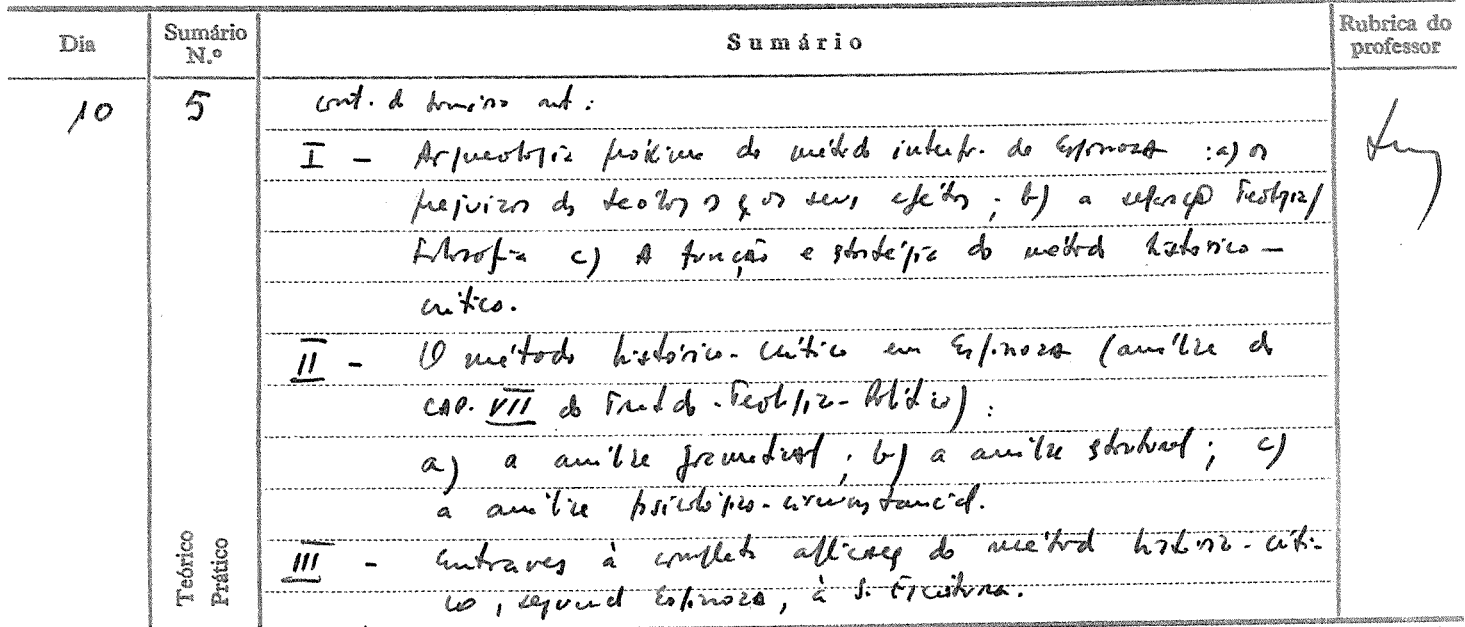 Dia Sumário N.º Sumário Rubrica do professor
10 5 cont. do sumário ant.:
I - Arqueologia próxima do método interpr. de Espinosa : a) os
prejuízos dos teólogos e os seus efeitos ; b) a separação Teologia/
Filosofia c) A função estratégica do método histórico-
crítico.
II - O método histórico-crítico em Espinosa (análise do
CAP. VII do Tratado-Teológico-Político) :
a) a análise gramatical ; b) a análise estrutural ; c)
a análise psicológico-circunstancial.
III - Entraves à completa aplicação do método histórico-críti-
co, segundo Espinosa, à S. Escritura.
Teórico
Prático